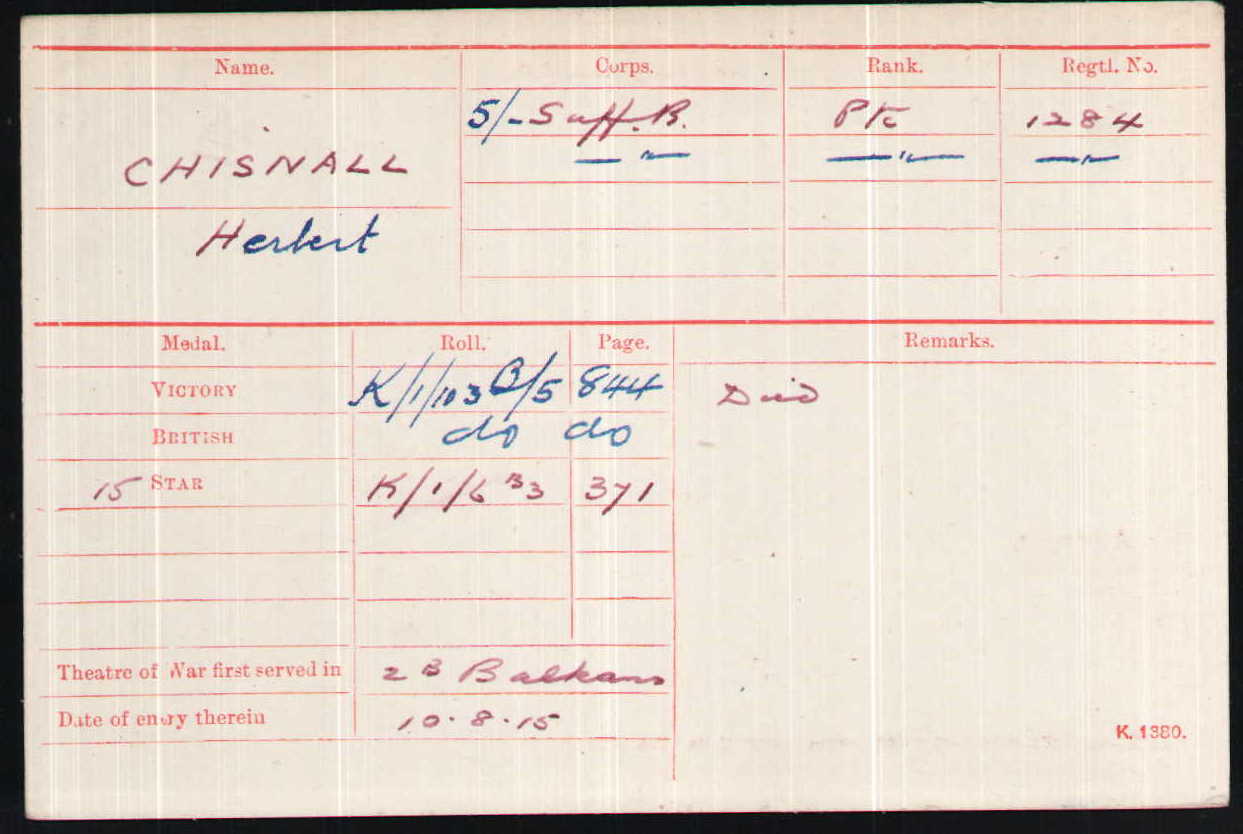 Name. Corps. Rank. Regtl. No.
5/-Suff.R. Pte 1284
CHISNALL —"— —"— —"—
Herbert
Medal. Roll. Page. Remarks.
VICTORY K/1/103B/5 844 Died
BRITISH do do
15 STAR K/1/6 B3 371
Theatre of War first served in 2B Balkans
Date of entry therein 10.8.15
K. 1380.